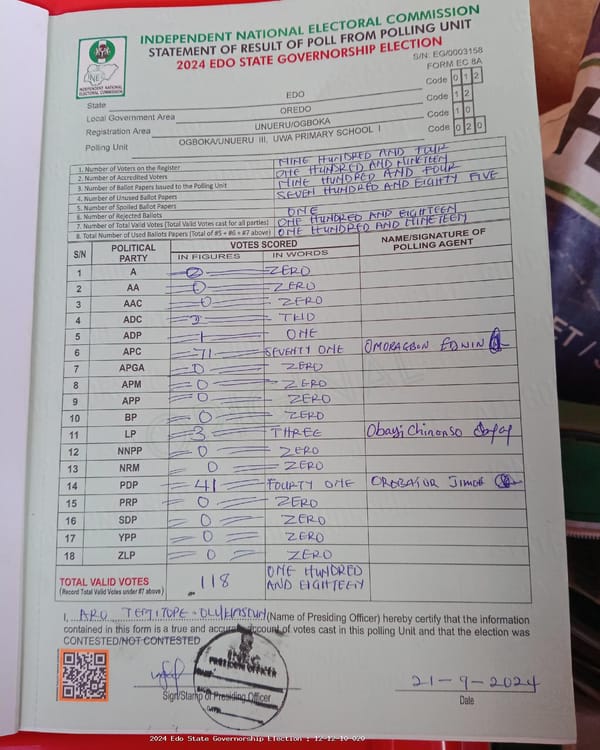 INDEPENDENT NATIONAL ELECTORAL COMMISSION
STATEMENT OF RESULT OF POLL FROM POLLING UNIT
2024 EDO STATE GOVERNORSHIP ELECTION
S/N: EG/0003158
FORM EC 8A
INDEPENDENT NATIONAL ELECTORAL COMMISSION
State EDO Code 0 1 2
Local Government Area OREDO Code 1 2
Registration Area UNUERU/OGBOKA Code 1 0
Polling Unit OGBOKA/UNUERU III, UWA PRIMARY SCHOOL I Code 0 2 0
1. Number of Voters on the Register NINE HUNDRED AND FOUR
2. Number of Accredited Voters ONE HUNDRED AND NINETEEN
3. Number of Ballot Papers Issued to the Polling Unit NINE HUNDRED AND FOUR
4. Number of Unused Ballot Papers SEVEN HUNDRED AND EIGHTY FIVE
5. Number of Spoiled Ballot Papers
6. Number of Rejected Ballots ONE
7. Number of Total Valid Votes (Total Valid Votes cast for all parties) ONE HUNDRED AND EIGHTEEN
8. Total Number of Used Ballots Papers (Total of #5 + #6 + #7 above) ONE HUNDRED AND NINETEEN
S/N POLITICAL PARTY VOTES SCORED NAME/SIGNATURE OF POLLING AGENT
IN FIGURES IN WORDS
1 A 0 ZERO
2 AA 0 ZERO
3 AAC 0 ZERO
4 ADC
5 ADP 1 ONE
6 APC 71 SEVENTY ONE OMORAGBON EDWIN
7 APGA 0 ZERO
8 APM 0 ZERO
9 APP 0 ZERO
10 BP 0 ZERO
11 LP 3 THREE Obayi Chinonso
12 NNPP 0 ZERO
13 NRM 0 ZERO
14 PDP 41 FOURTY ONE
15 PRP 0 ZERO
16 SDP 0 ZERO
17 YPP 0 ZERO
18 ZLP 0 ZERO
TOTAL VALID VOTES 118 ONE HUNDRED AND EIGHTEEN
(Record Total Valid Votes under #7 above)
I, ARO TEMITOPE (Name of Presiding Officer) hereby certify that the information
contained in this form is a true and accurate account of votes cast in this polling Unit and that the election was
CONTESTED/NOT CONTESTED
INEC
PRESIDING OFFICER
21-9-2024
Sign/Stamp of Presiding Officer Date
2024 Edo State Governorship Election : 12-12-10-020